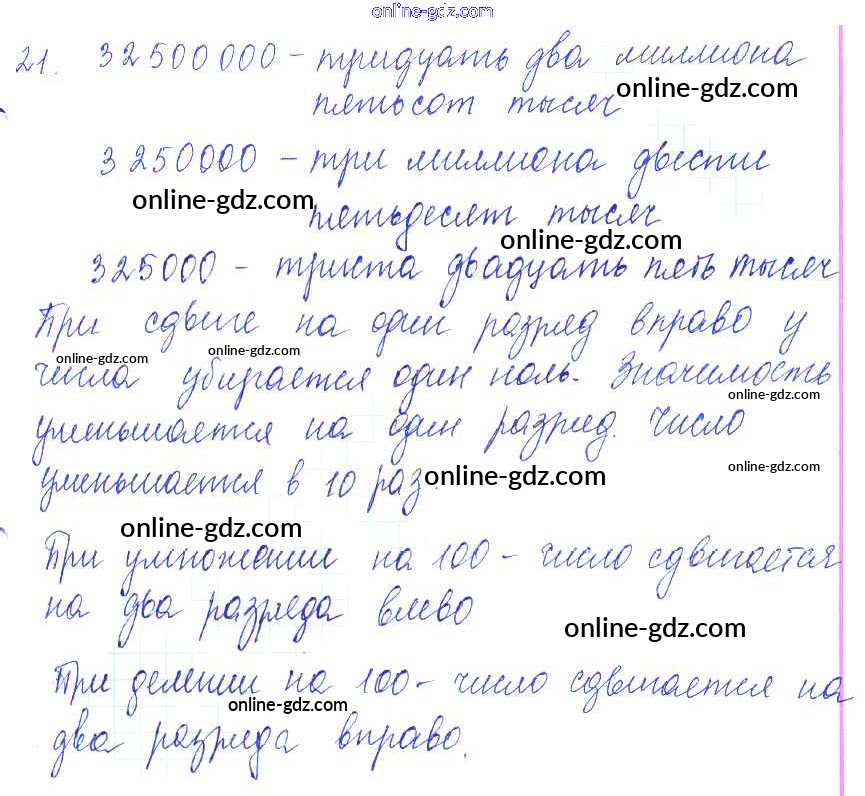 online-gdz.com
21. 32500000 - тридцать два миллиона
online-gdz.com
пятьсот тысяч
3250000 - три миллиона двести
online-gdz.com
пятьдесят тысяч
online-gdz.com
325000 - триста двадцать пять тысяч
При сдвиге на один разряд вправо у
online-gdz.com online-gdz.com
числа убирается один ноль. Значимость
online-gdz.com
уменьшается на один разряд. Число
online-gdz.com
уменьшается в 10 раз.
online-gdz.com
online-gdz.com
При умножении на 100 - число сдвигается
на два разряда влево
online-gdz.com
При делении на 100 - число сдвигается на
online-gdz.com
два разряда вправо.